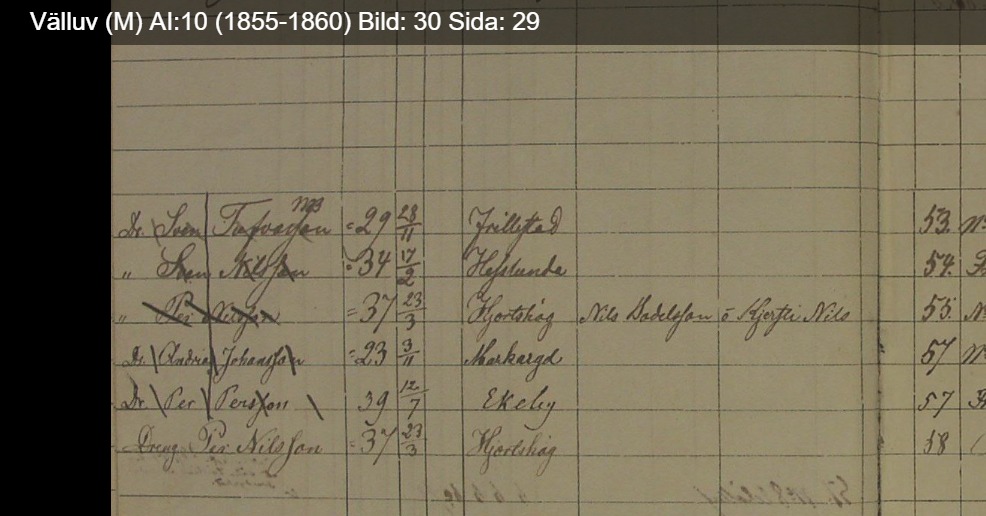 Välluv (M) AI:10 (1855-1860) Bild: 30 Sida: 29
Dr. Sven = 29 28/11 Frillestad 53.
" Sven Nilsson = 34 17/2 Hesslunda 54.
" Per Nilsson = 37 23/3 Hjortshög Nils Bodelsson o Kjersti Nils 55.
Dr. Andreas Johansson = 23 3/11 57
Dr Per Persson 39 12/7 Ekeby 57
Dreng Per Nilsson = 37 23/3 Hjortshög 58